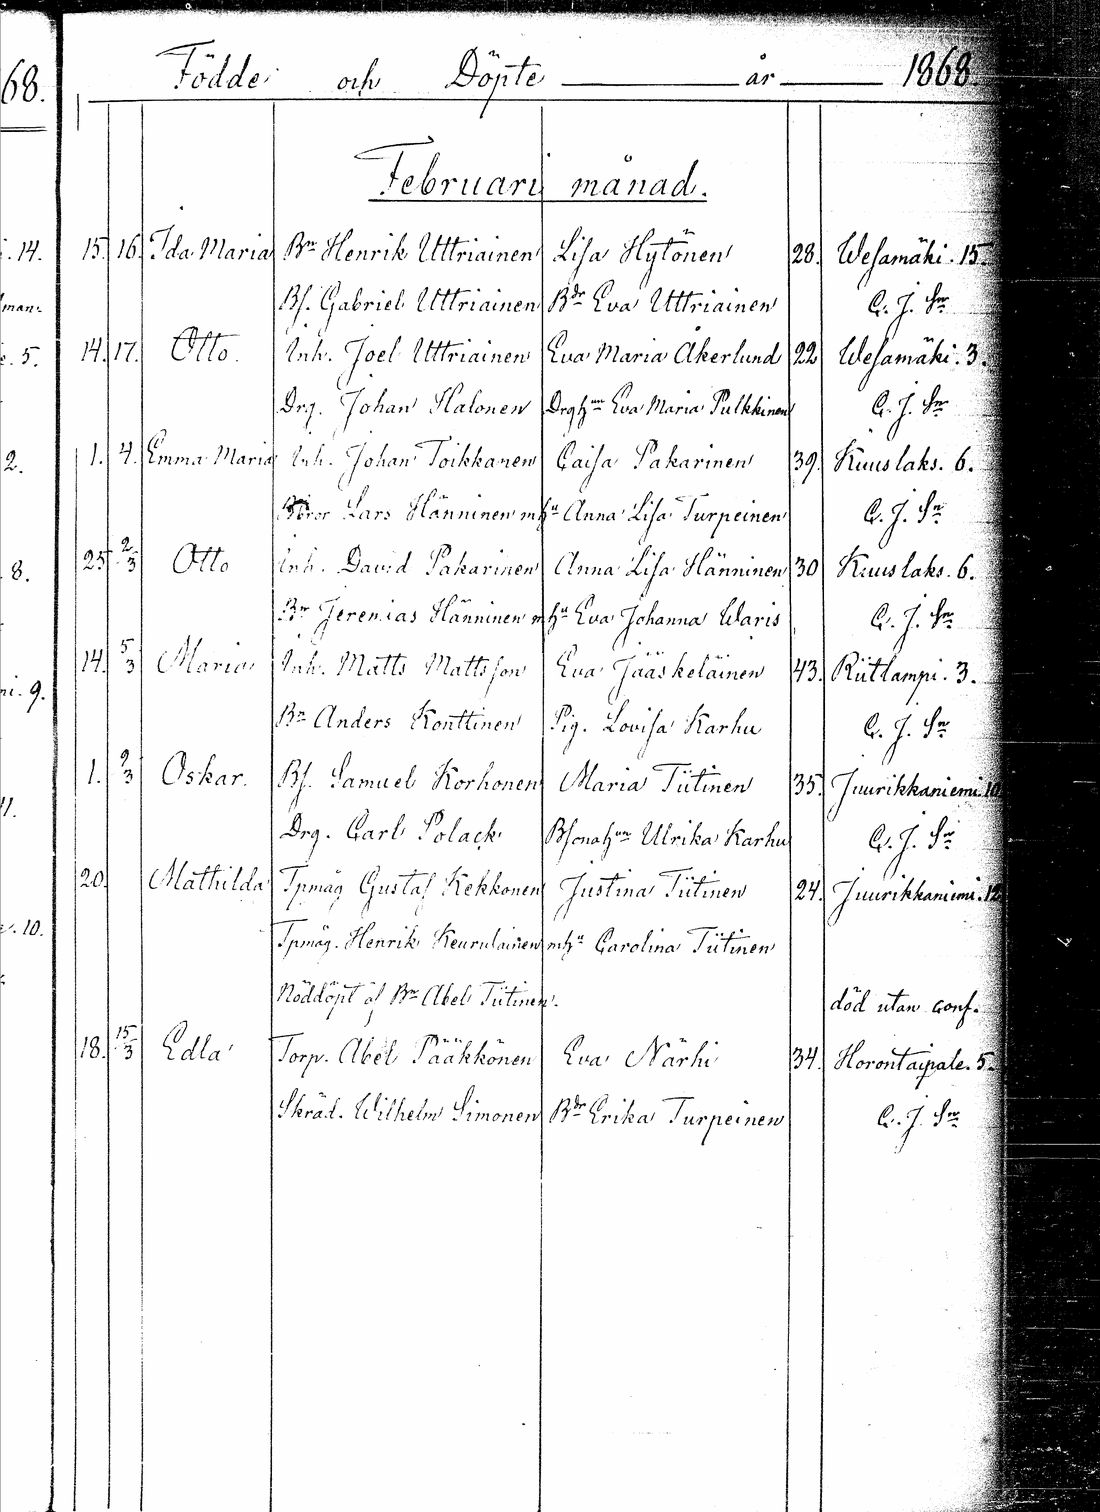 68.
Födde och Döpte år 1868
Februari månad.
14. 15. 16. Ida Maria Bn Henrik Uttriainen Lisa Hytönen 28. Wesamäki. 15.
Bs. Gabriel Uttriainen Bdr Eva Uttriainen C. J. Sn
5. 14. 17. Otto. Inh. Joel Uttriainen Eva Maria Åkerlund 22 Wesamäki. 3.
Drg. Johan Halonen Drghun Eva Maria Pulkkinen C. J. Sn
2. 1. 4. Emma Maria Inh. Johan Toikkanen Caisa Pakarinen 39. Kuuslaks. 6.
Lars Hänninen mhu Anna Lisa Turpeinen C. J. Sn
8. 25 2/3 Otto Inh. David Pakarinen Anna Lisa Hänninen 30 Kuuslaks. 6.
Bn Jeremias Hänninen mhu Eva Johanna Waris C. J. Sn
9. 14. 5/3 Maria Inh. Matts Mattsson Eva Jääskeläinen 43. Riitlampi. 3.
Bn Anders Konttinen Pig. Lovisa Karhu C. J. Sn
1. 9/3 Oskar. Bs. Samuel Korhonen Maria Tiitinen 35. Juurikkaniemi. 10
Drg. Carl Polack Bsonahun Ulrika Karhu C. J. Sn
20. Mathilda Tpmåg Gustaf Kekkonen Justina Tiitinen 24. Juurikkaniemi. 12
10. Tpmåg. Henrik Keurulainen mhu Carolina Tiitinen
Nöddöpt af Bn Abel Tiitinen. död utan conf.
18. 15/3 Edla Torp. Abel Pääkkönen Eva Närhi 34. Horontaipale. 5.
Skräd. Wilhelm Simonen Bdr Erika Turpeinen C. J. Sn